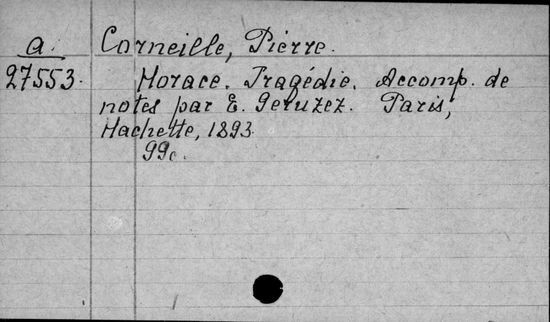 a. Corneille, Pierre.
27553. Horace. Tragédie. Accomp. de
notes par E. Geruzez. Paris,
Hachette, 1893.
99c.